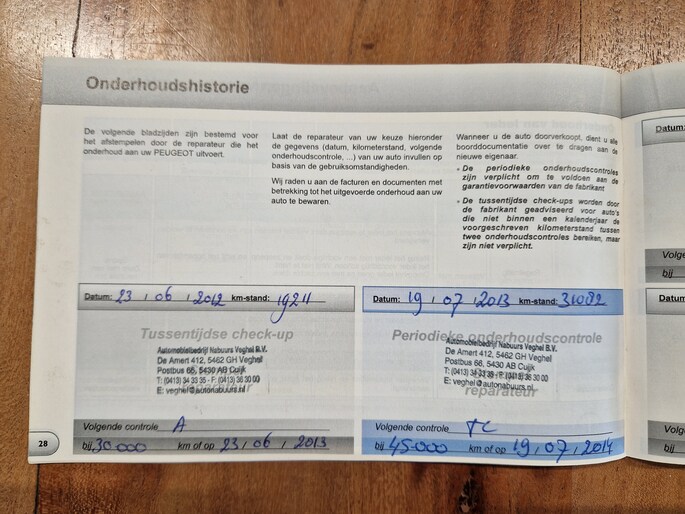 Onderhoudshistorie
De volgende bladzijden zijn bestemd voor
het afstempelen door de reparateur die het
onderhoud aan uw PEUGEOT uitvoert.
Laat de reparateur van uw keuze hieronder
de gegevens (datum, kilometerstand, volgende
onderhoudscontrole, ...) van uw auto invullen op
basis van de gebruiksomstandigheden.
Wij raden u aan de facturen en documenten met
betrekking tot het uitgevoerde onderhoud aan uw
auto te bewaren.
Wanneer u de auto doorverkoopt, dient u alle
boorddocumentatie over te dragen aan de
nieuwe eigenaar.
• De periodieke onderhoudscontroles
zijn verplicht om te voldoen aan de
garantievoorwaarden van de fabrikant
• De tussentijdse check-ups worden door
de fabrikant geadviseerd voor auto's
die niet binnen een kalenderjaar de
voorgeschreven kilometerstand tussen
twee onderhoudscontroles bereiken, maar
zijn niet verplicht.
Datum: 23 / 06 / 2012 km-stand: 19211
Tussentijdse check-up
Automobielbedrijf Nabuurs Veghel B.V.
De Amert 412, 5462 GH Veghel
Postbus 66, 5430 AB Cuijk
T: (0413) 34 33 35 - F: (0413) 36 30 00
E: veghel@autonabuurs.nl
reparateur
Volgende controle A
bij 30.000 km of op 23 / 06 / 2013
Datum: 19 / 07 / 2013 km-stand: 31082
Periodieke onderhoudscontrole
Automobielbedrijf Nabuurs Veghel B.V.
De Amert 412, 5462 GH Veghel
Postbus 66, 5430 AB Cuijk
T: (0413) 34 33 35 - F: (0413) 36 30 00
E: veghel@autonabuurs.nl
reparateur
Volgende controle TC
bij 45.000 km of op 19 / 07 / 2014
28
Datum:
Volge
bij
Datum:
Volge
bij